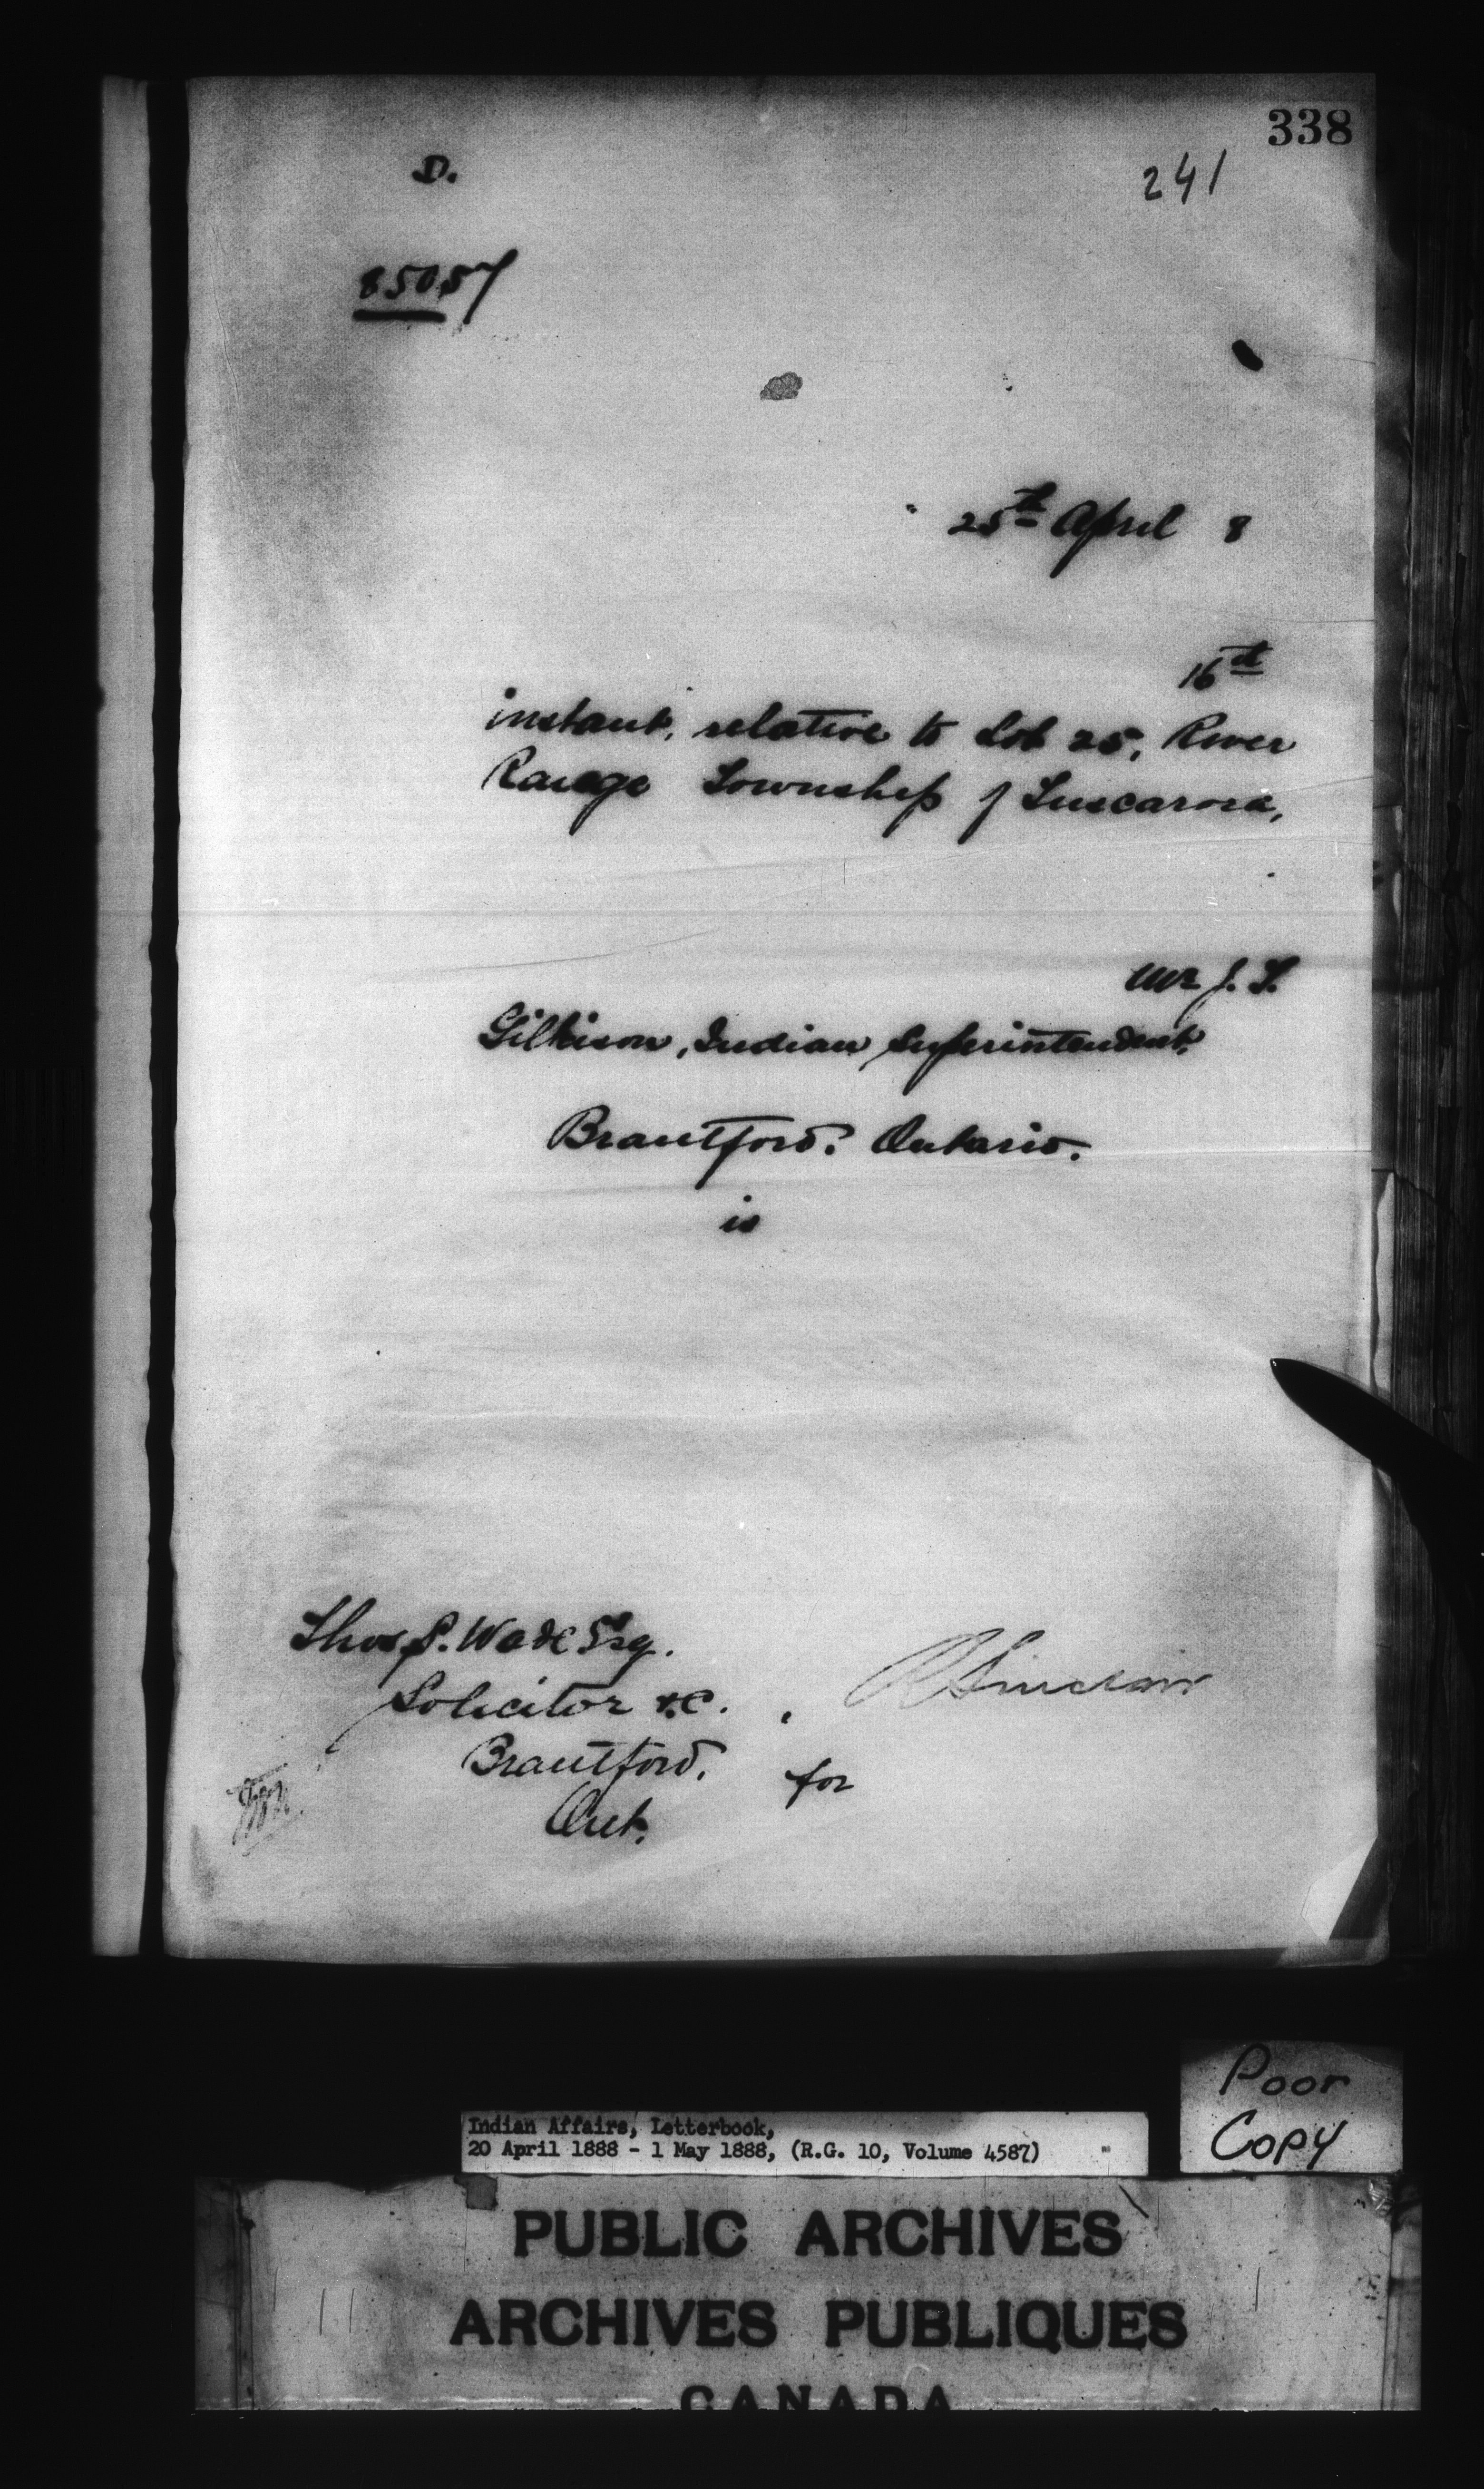 338
D.
241
85057
25th April 8
16th
instant, relative to Lot 25, River
Range Township of Tuscarora,
Mr J. T.
Gilkison, Indian Superintendent,
Brantford. Ontario.
is
Thos S. Wade Esq.
Solicitor &c.
R Sinclair
Brantford,
for
Ont.
Poor
Copy
Indian Affairs, Letterbook,
20 April 1888 - 1 May 1888, (R.G. 10, Volume 4587)
PUBLIC ARCHIVES
ARCHIVES PUBLIQUES
CANADA